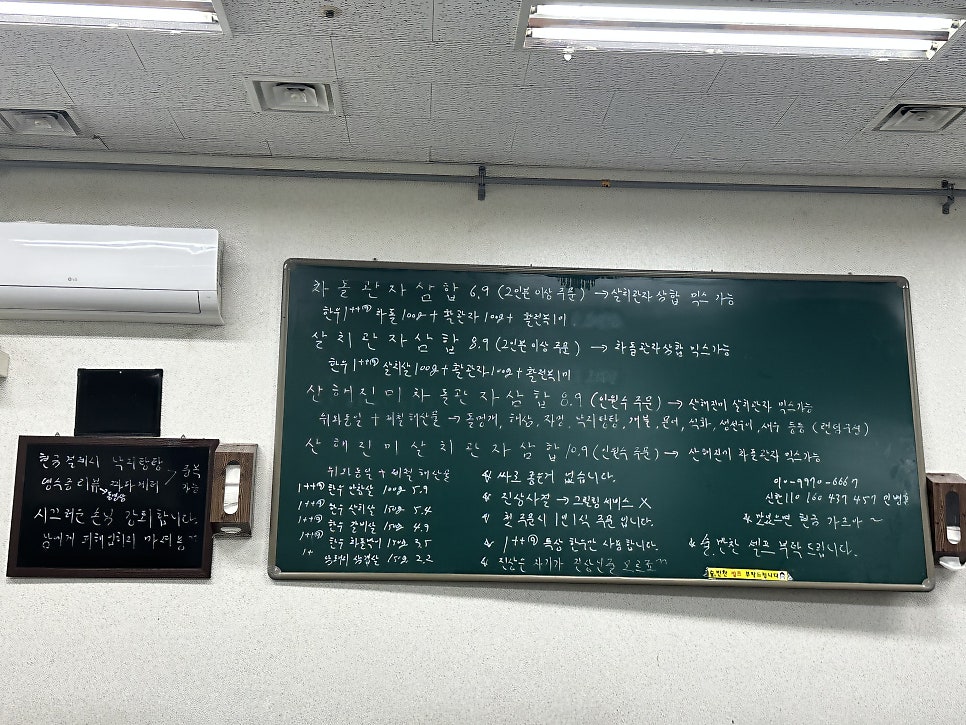 LG
차돌관자삼합 6.9 (2인분 이상 주문) → 살치관자삼합 믹스 가능
한우 1++⑨ 차돌 100g + 활관자 100g + 활전복 1미
살치관자삼합 8.9 (2인분 이상 주문) → 차돌관자삼합 믹스가능
한우 1++⑨ 살치살 100g + 활관자 100g + 활전복 1미
산해진미차돌관자삼합 8.9 (인원수 주문) → 산해진미 살치관자 믹스가능
위와동일 + 제철해산물 → 돌멍개, 해삼, 낙지탕탕, 개불, 문어, 석화, 생선구이, 새우 등등 (랜덤구성)
산해진미살치관자삼합 10.9 (인원수 주문) → 산해진미 차돌관자 믹스가능
위와동일 + 제철 해산물
1++⑨ 한우 안창살 100g 5.9
1++⑨ 한우 살치살 150g 5.4
1++⑨ 한우 갈비살 150g 4.9
1++⑨ 한우 차돌박이 150g 3.5
1+ 삼겹살 150g 2.2
싸고 좋은거 없습니다.
진상사절 → 그릴링 서비스 X
첫 주문시 1인 1식 주문 입니다.
1++⑨ 특상 한우만 사용합니다.
진상은 자기가 진상인줄 모르죠^^
010-9970-6667
신한 110 160 437 457
맛있으면 현금 가즈아~
술, 반찬 셀프 부탁드립니다.
술,반찬 셀프 부탁드립니다
현금결제시 낙지탕탕
영수증 리뷰 →
중복
가능
시끄러운 손님 강퇴합니다.
남에게 피해 마세용^^